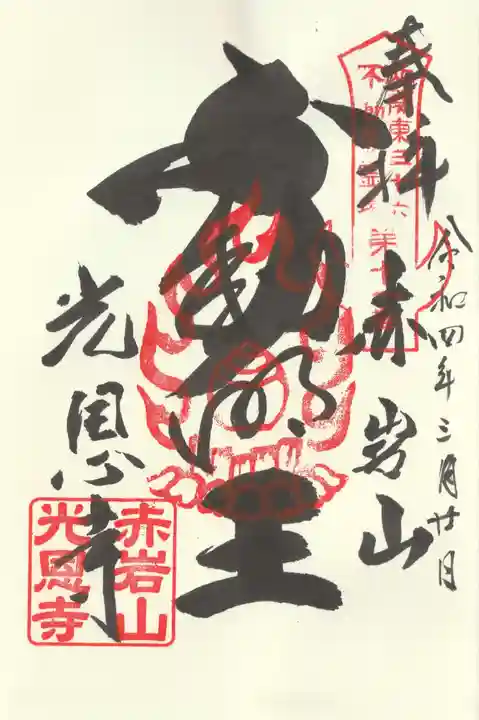 令和四年三月廿日
奉拝
赤岩山
不動明王
光恩寺
関東三十六
不動
赤岩山
光恩寺